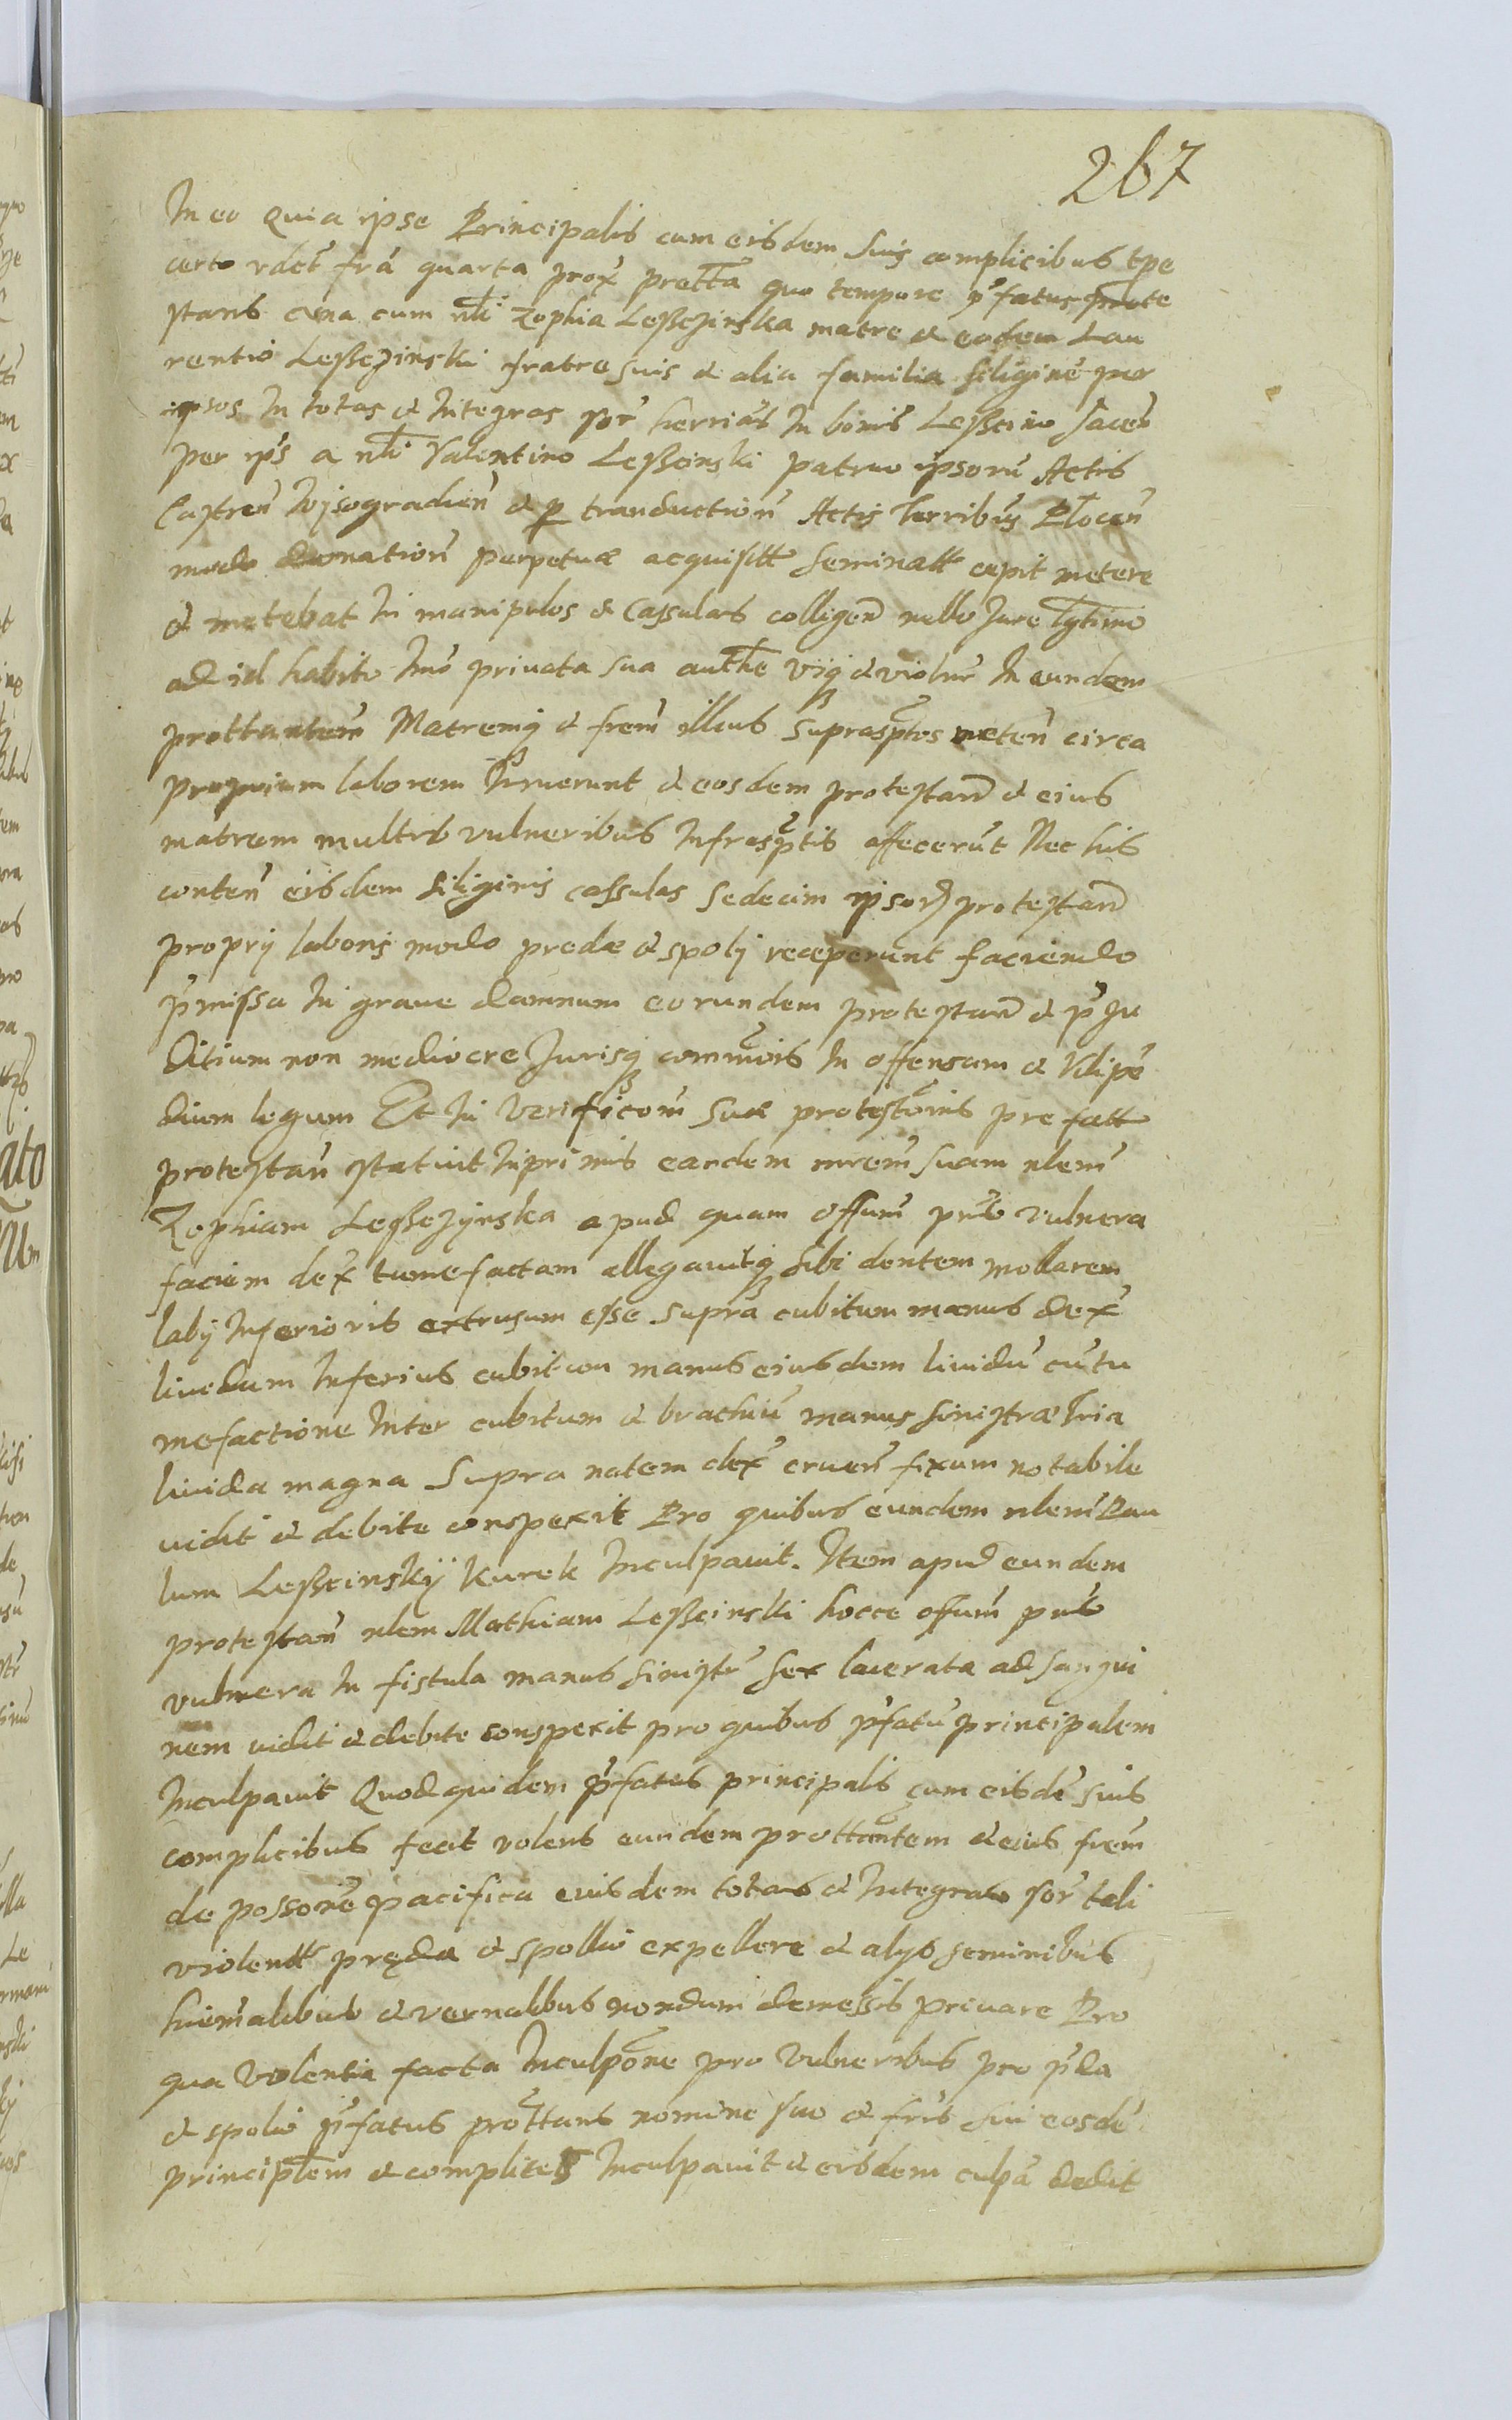 267
In eo quia ipse Principalis cum eisdem suis complicibus tpe
certo vdct frá quarta prox̃ prettã quo tempore p̃fatus prote
stans una cum nli Zophia Lesseżinska matre et eodem Lau
rentio Lesseżinski fratre suis et alia familia siligine͂ per
ipsos In totas et Integras sor͂ herrias In bonis Lesscino jacen͂
per ips͂ a nli Valentino Lesscinski patruo ipsoru͂ Actis
Castren͂ Wysogradien͂ et p tranductión͂ Actis Terribus͂ Plocen͂
modo donation͂ perpetuæ acquisitt seminatt cepit metere
et metebat In manipulos et Cassulas colligen͂ nullo Jure lgtimo
ad id habito Imo͂ privata sua authe vijq et violnr͂ In eundem
prottantem͂ Matremq et frem͂ illius suprasptos meten͂ circa
proprium laborem Irruerunt et eosdem protestan͂ et eius
matrem multis vulneribus Infrasptis affecerũt Nec his
conten͂ eisdem siliginis cassulas sedecim ipsor protestan͂
proprij laboris modo predæ et spolij receperunt faciendo
p͂missa In graue damnum eorundem protestan͂ et p͂ Ju
ditium non mediocre Jurisq com͂unis In offensam et Vilipe͂
dium legum Et In verificõm suæ protestõnis prefatt
protestan͂ statuit Inprimis eandem mrem͂ suam nlem͂
Zophiam Lesseżynska apud quam offum͂ pn͂s vulnera
faciem dex͂ tumefactam allegavitq sibi dentem mollarem
labij Inferioris extrusum esse supra cubitum manus dex͂
liuedum Inferius cubitum manus eiusdem liuidu͂ cu͂ tu
mefactione Inter cubitum et brachiu͂ manus sinistræ tria
liuida magna supra natem dex͂ cruen͂ fixum notabile
uidit et debite conspexit Pro quibus eundem nlem͂ Pau
lum Lesscinskij Kurek Inculpauit. Item apud eundem
protestan͂ nlem Mathiam Lesscinski hocce offum͂ pn͂s
vulnera In fistula manus sinistr͂ sex lacerata ad sangui
nem uidit et debite conspexit pro quibus p͂fatu͂ principalem
Inculpauit Quod quidem p͂fatus principalis cum eisde͂ suis
complicibus fecit volens eundem prottantem et eius frem͂
de possone͂ pacifica euisdem totas et Integras sor͂ tali
violentt pręda et spollio expellere et alijs seminibus
hiem͂alibus et vernalibus nondum demessis priuare Pro
qua violentia facta Inculpõne pro Vulneribus pro p͂da
et spolio p͂fatus prottans nomine suo et fris͂ sui eosde͂
principlem et complites Inculpauit et eisdem culpã dedit